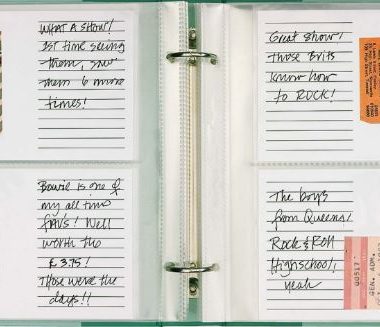 WHAT A SHOW!
1ST time seeing
them, saw
them 6 more
times!
Great Show!
Those Brits
know how
to ROCK!
Bowie is one of
my all time
FAV'S! Well
worth the
£ 3.75!
Those were the
days!!
The boys
from Queens!
Rock & Roll
Highschool,
yeah
00517
GEN. ADM.